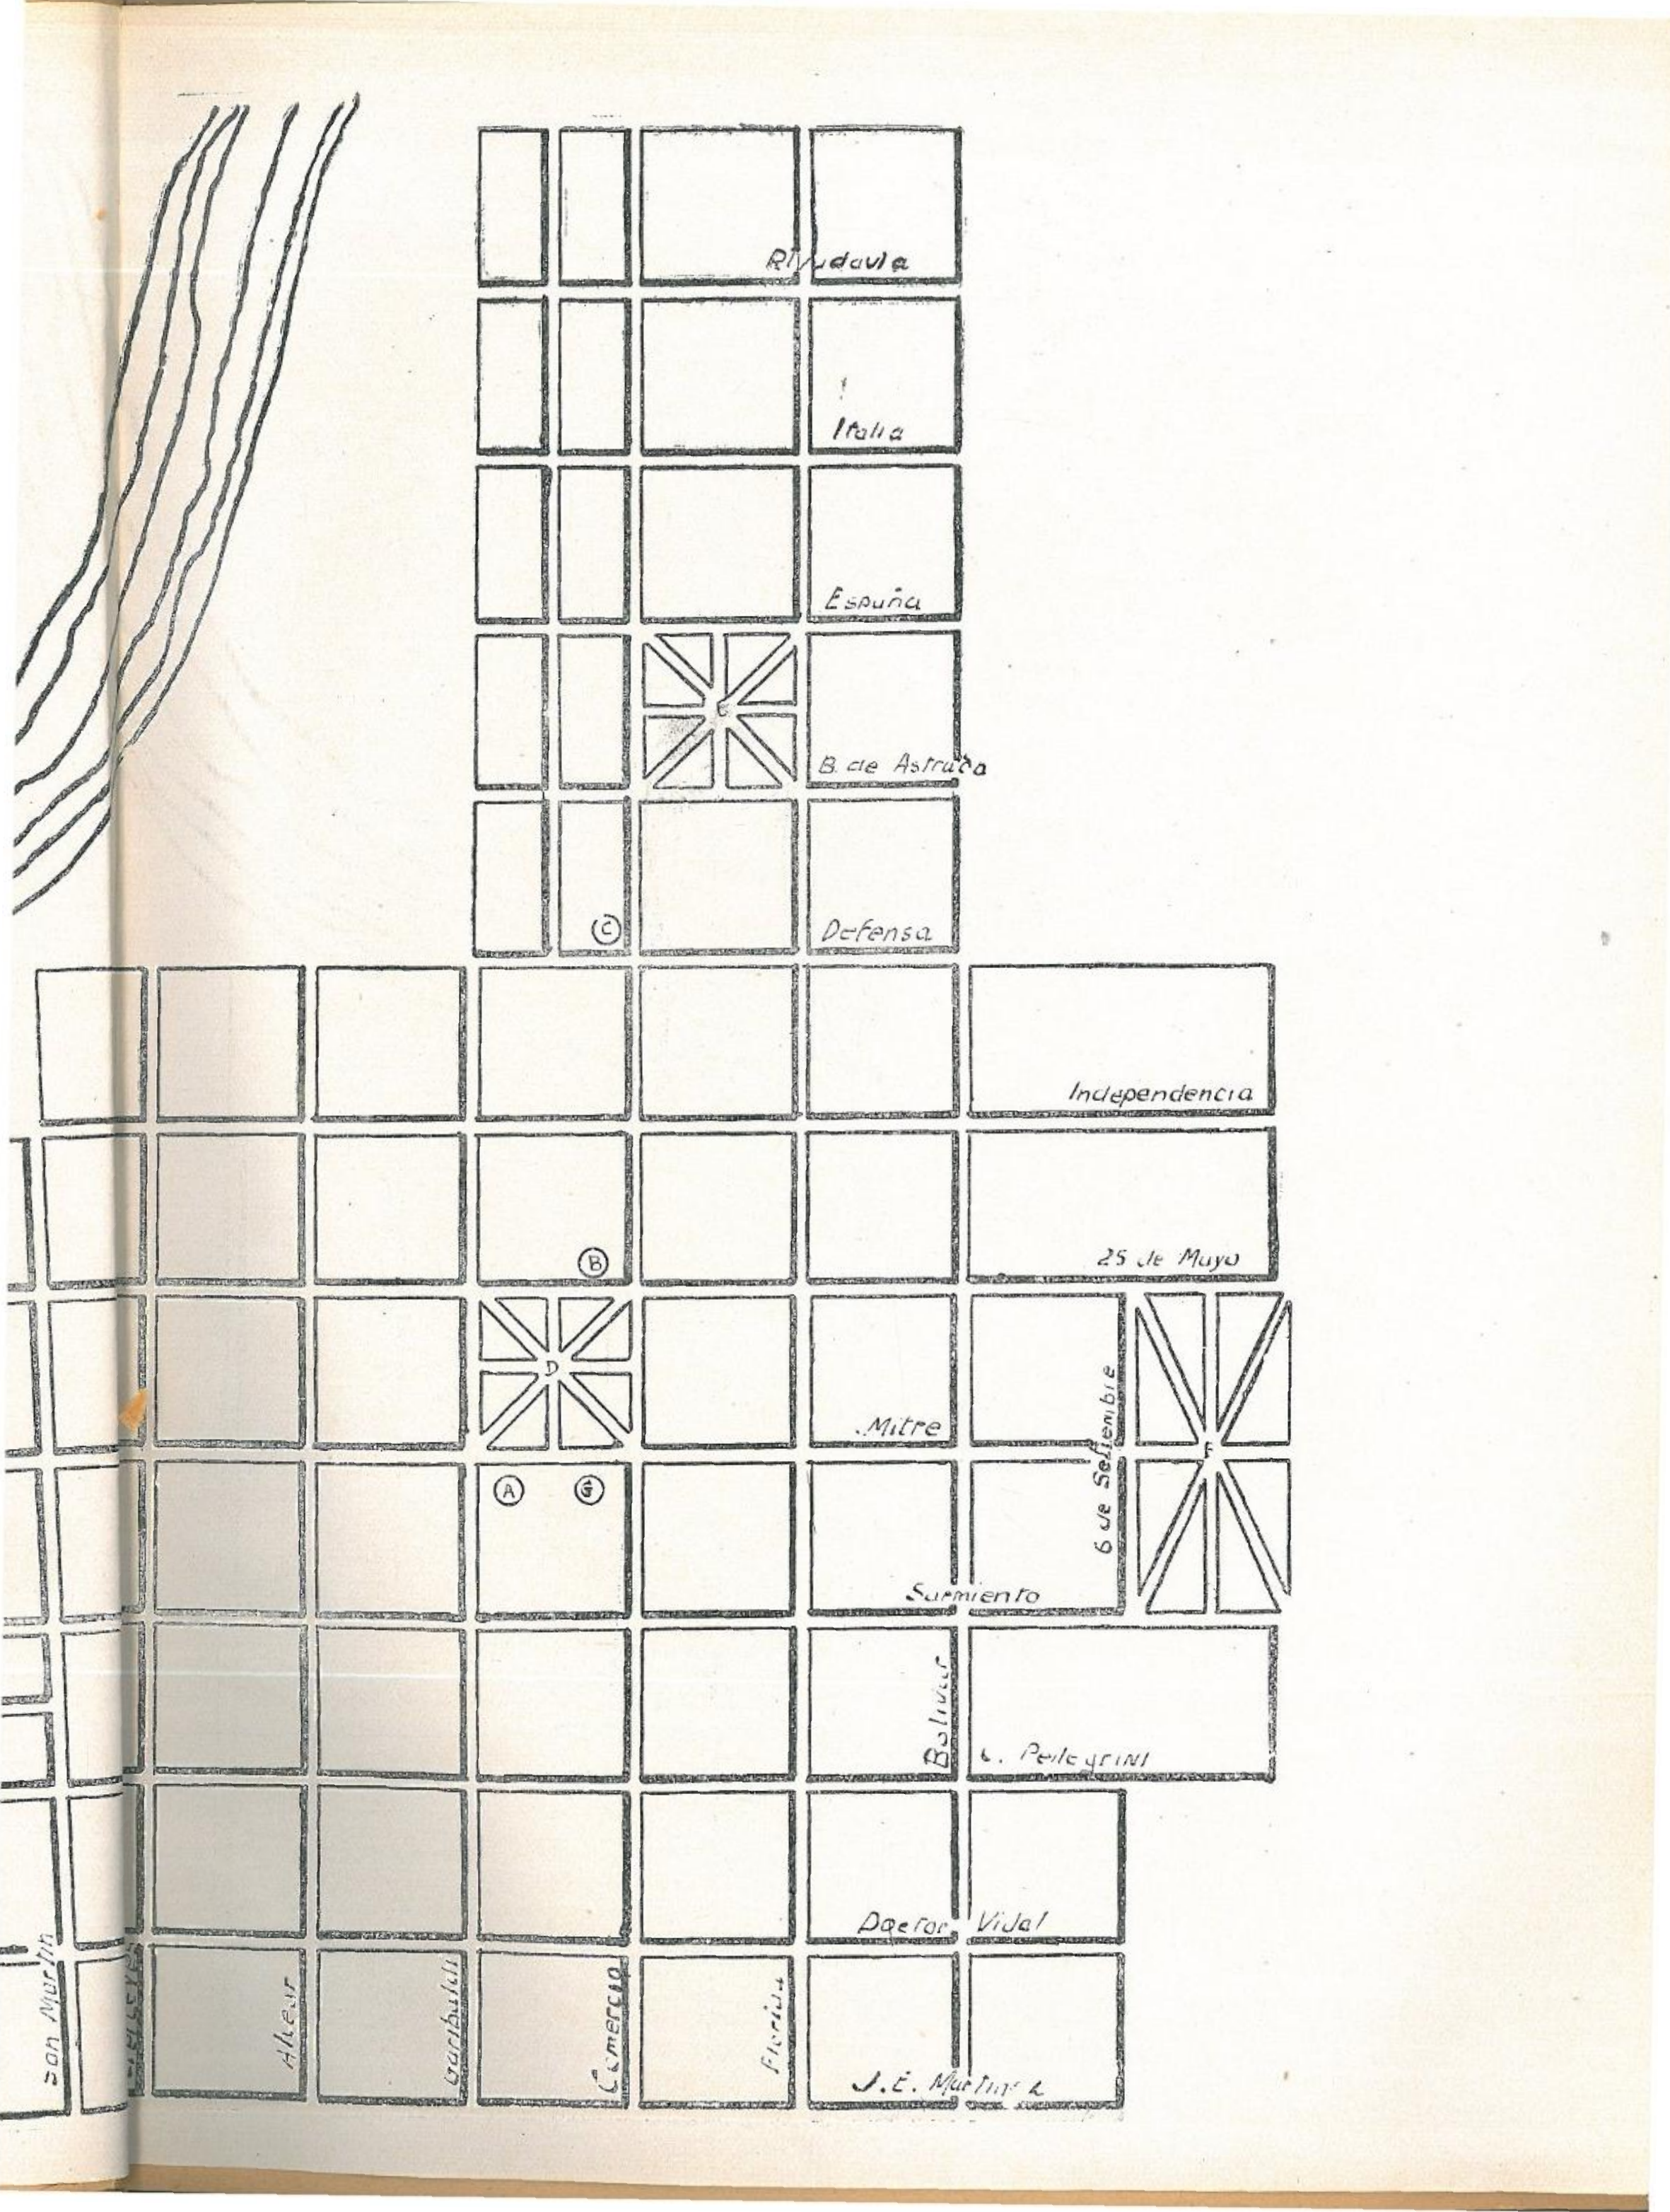 Rivadavia
Italia
España
E
B. de Astrada
C
Defensa
Independencia
B
25 de Mayo
D
Mitre
6 de Setiembre
F
A G
Sarmiento
Bolivar
C. Pellegrini
Doctor Vidal
San Martin
Alvear
Garibaldi
Comercio
Florida
J.E. Martinez